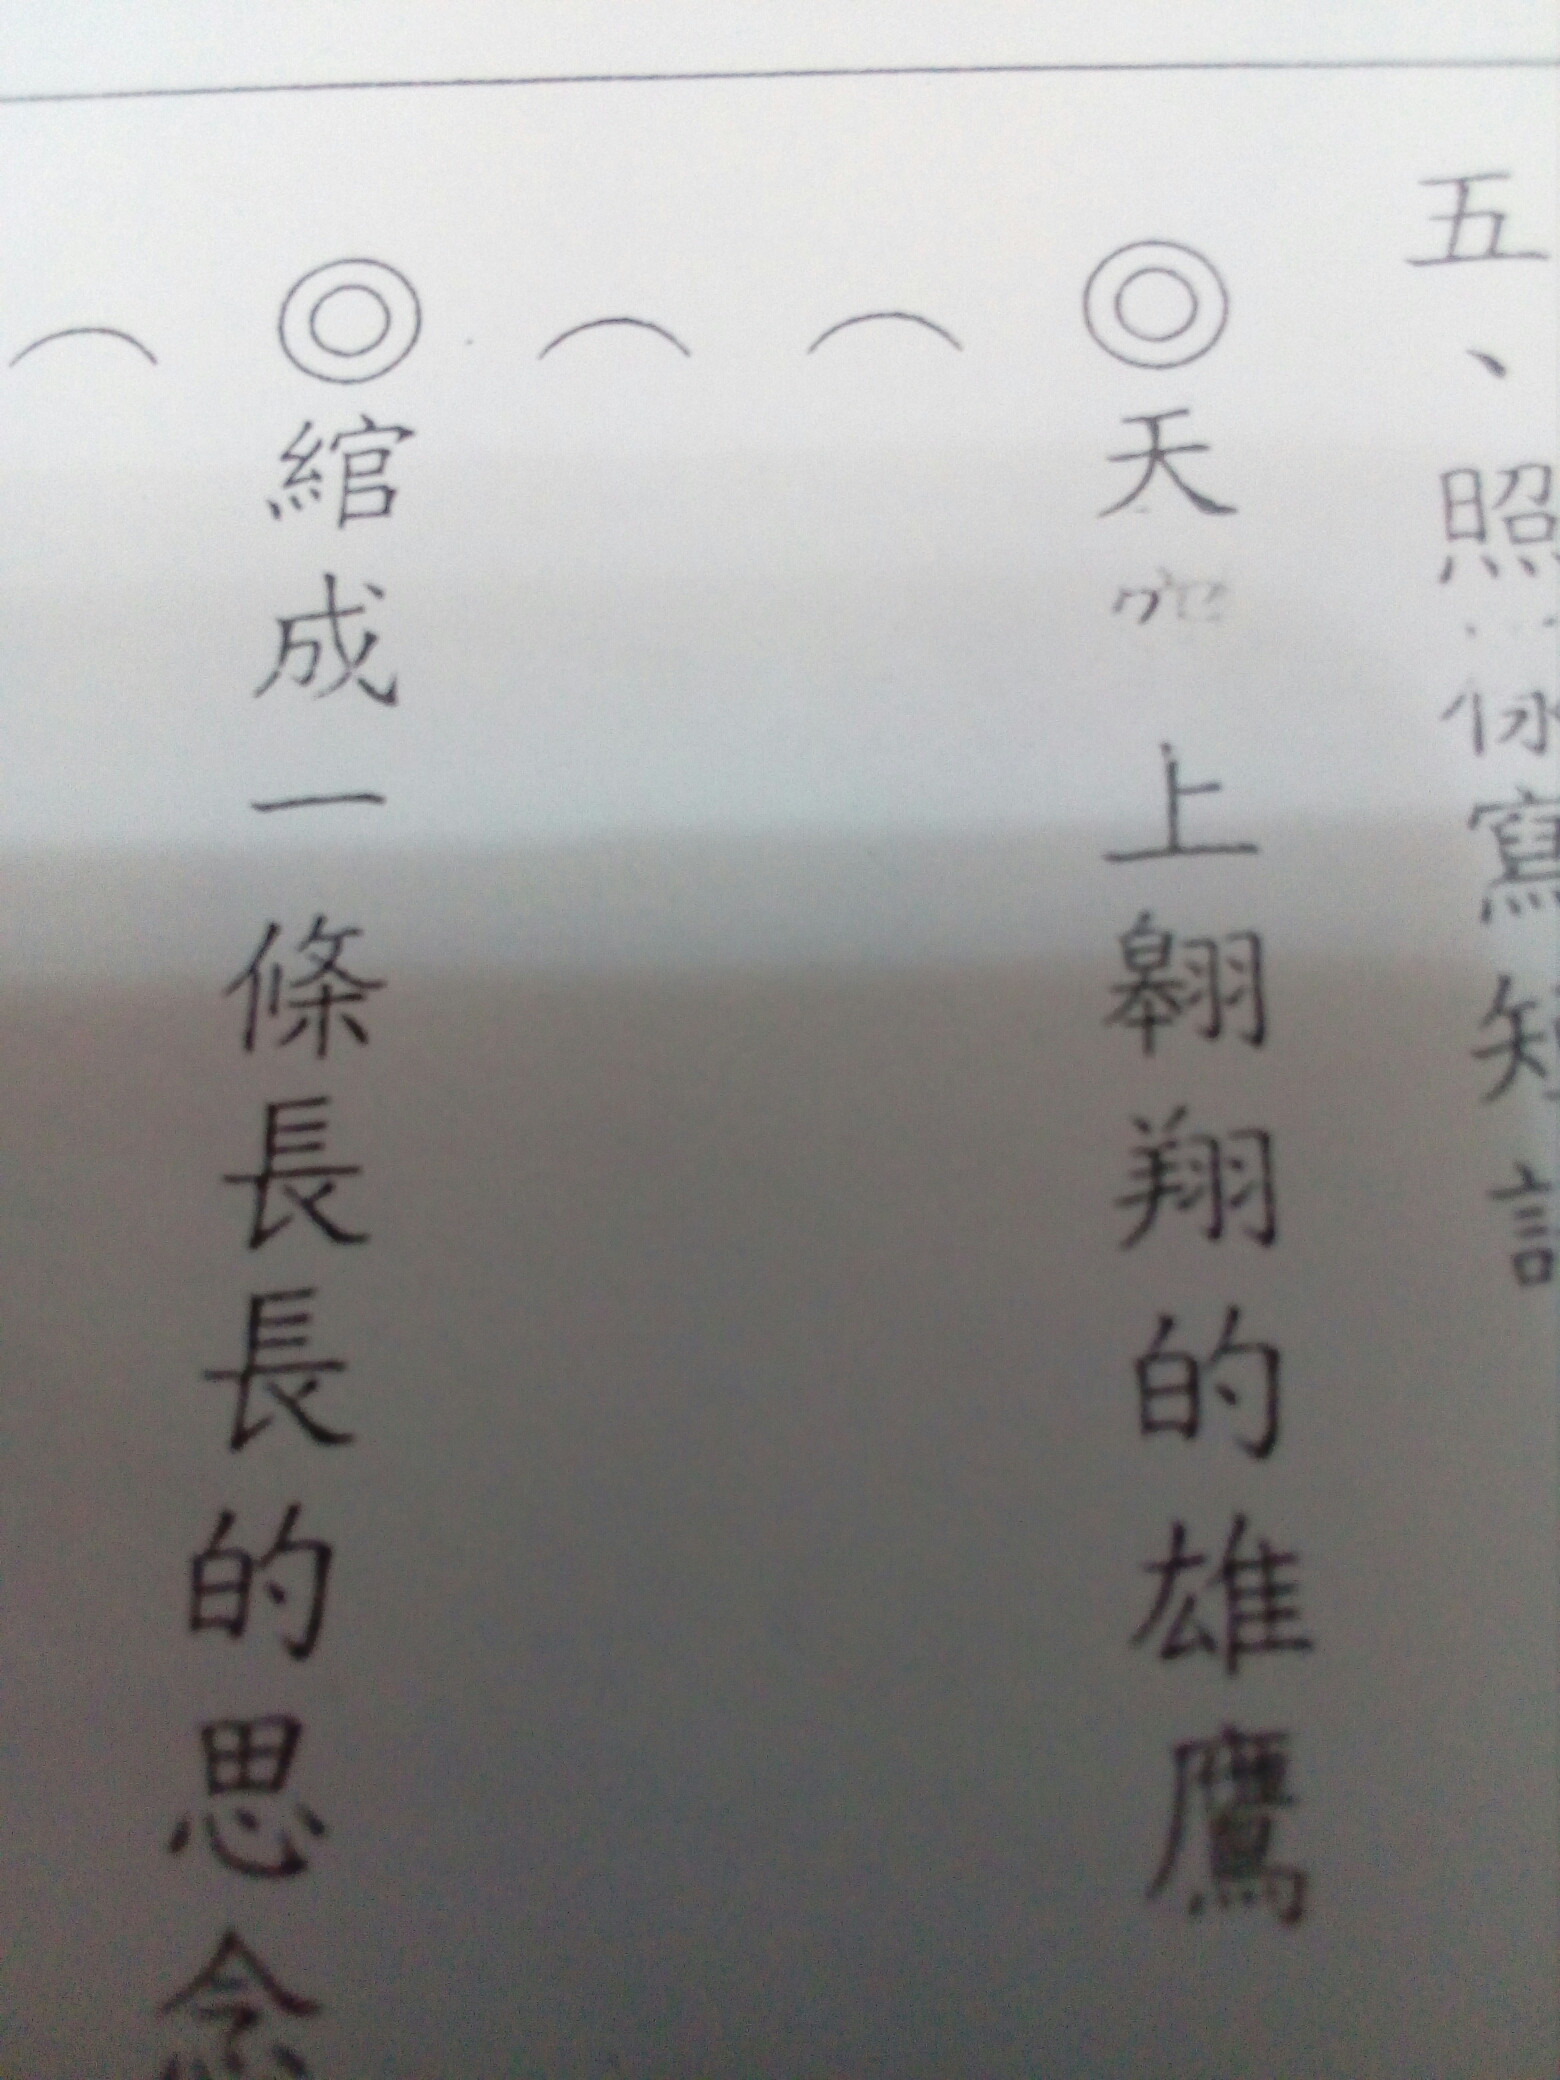 五、照樣寫短
◎天空上翱翔的雄鷹
（
（
◎綰成一條長長的思念
（